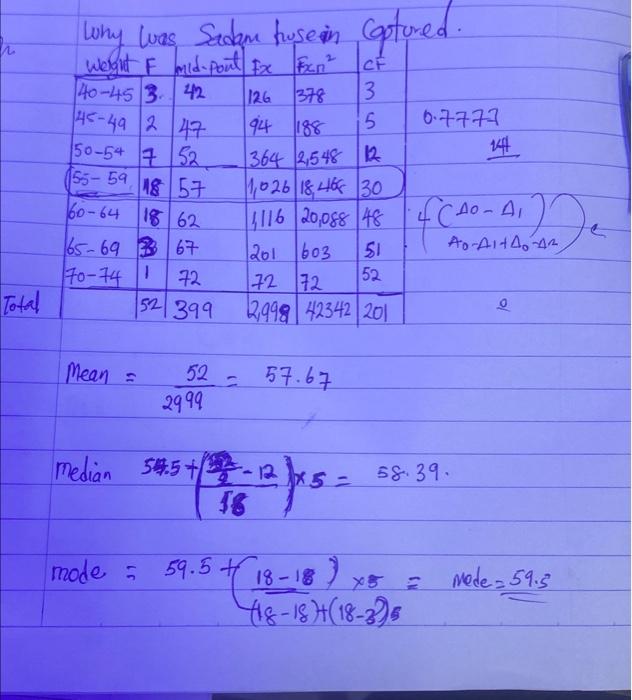 Why Was Sadam husein Captured.
Weight F mid-point Fx Fxn² CF
40-45 3 42 126 378 3
45-49 2 47 94 188 5 0.7773
50-54 7 52 364 2,548 12
55-59 18 57 1,026 18,468 30
60-64 18 62 1,116 20,088 48 + (Δ0 - Δ1 / Δ0-Δ1+Δ0-Δ2) c
65-69 3 67 201 603 51
70-74 1 72 72 72 52
Total 52 399 2,999 42342 201
Mean = 52/2999 = 57.67
median 54.5 + (52/2 - 12 / 18) x 5 = 58.39.
mode = 59.5 + (18-18 / (18-18)+(18-3)) x 5 = Mode = 59.5